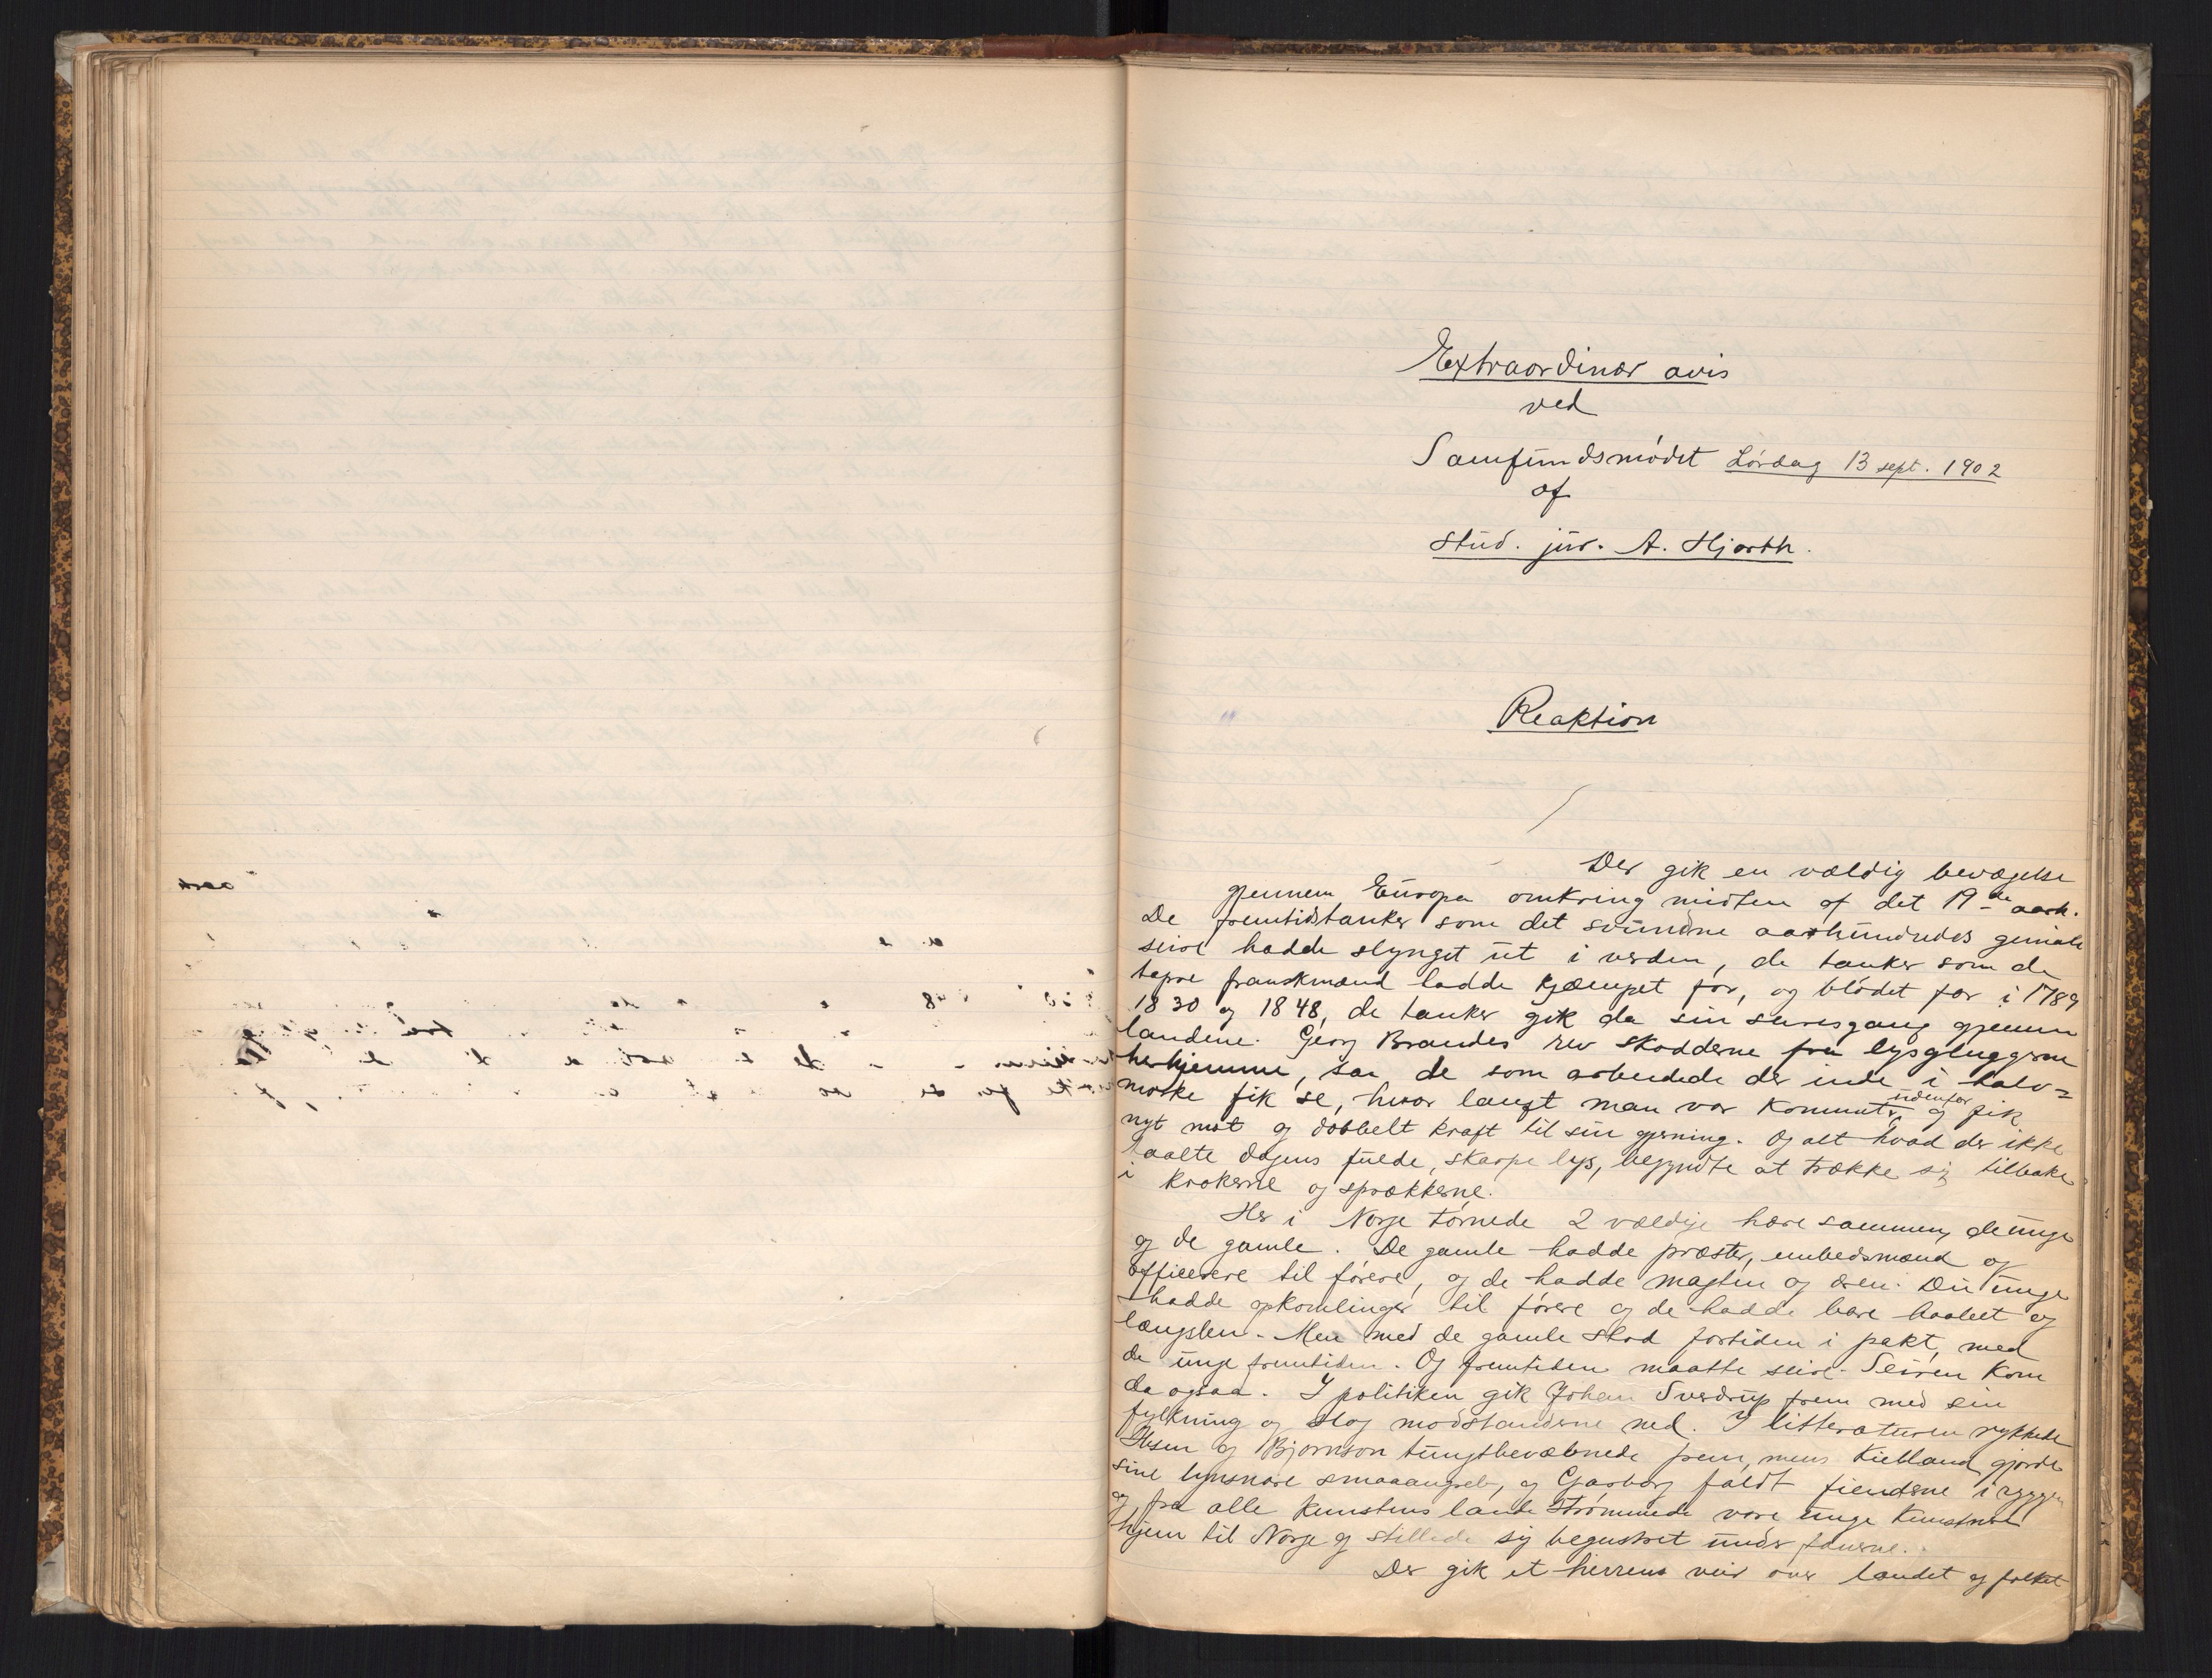 Extraordinær avis
ved
Samfundsmødet Lørdag 13 sept. 1902
af
stud. jur. A. Hjorth.
Reaktion
Der gik en vældig bevægelse
gjennem Europa omkring midten af det 19de aarh.
De fremtidstanker som det svundne aarhundredes geniale
seire hadde slynget ut i verden, de tanker som de
tapre franskmænd hadde kjæmpet for, og blødet for i 1789
1830 og 1848, de tanker gik da sin seiersgang gjennem
landene. Georg Brandes rev skodderne fra lysgluggerne
herhjemme, saa de som arbeidede der inde i halv=
mørke fik se, hvor langt man var kommet udenfor, og fik
nyt mot og dobbelt kraft til sin gjerning. Og alt hvad der ikke
taalte dagens fulde, skarpe lys, begyndte at trække sig tilbake
i krokerne og sprækkerne.
Her i Norge tørnede 2 vældige hære sammen, de unge
og de gamle. De gamle hadde præster, embedsmænd og
officerere til førere, og de hadde magten og æren. De unge
hadde opkomlinger til førere og de hadde bare haabet og
længslen. Men med de gamle stod fortiden i pakt, med
de unge fremtiden. Og fremtiden maatte seire. Seiren kom
da ogsaa. I politiken gik Johan Sverdrup frem med sin
fylkning og slog modstanderne ned. I litteraturen rykkede
Ibsen og Bjørnson tungtbevæbnede frem, mens Kielland gjorde
sine lynsnare smaaangreb, og Garborg faldt fienderne i ryggen
og fra alle kunstens lande strømmede vore unge kunstnere
hjem til Norge og stillede sig begeistret under fanerne.
Der gik et herrens veir over landet og folket